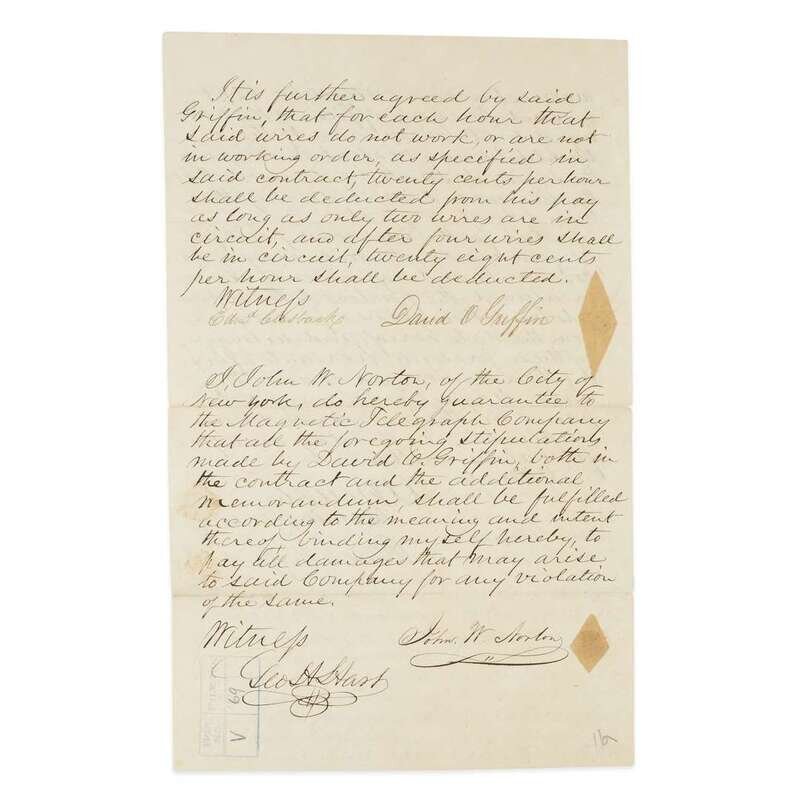 It is further agreed by said
Griffin, that for each hour that
said wires do not work, or are not
in working order, as specified in
said contract, twenty cents per hour
shall be deducted from his pay
as long as only two wires are in
circuit, and after four wires shall
be in circuit, twenty eight cents
per hour shall be deducted.
Witness
David O Griffin
I, John W. Norton, of the City of
New york, do hereby guarantee to
the Magnetic Telegraph Company
that all the foregoing stipulations
made by David O. Griffin, both in
the contract and the additional
memorandum, shall be fulfilled
according to the meaning and intent
thereof binding myself hereby, to
pay all damages that may arise
to said Company for any violation
of the same.
Witness
John. W Norton
Geo H Hart
V 69
16